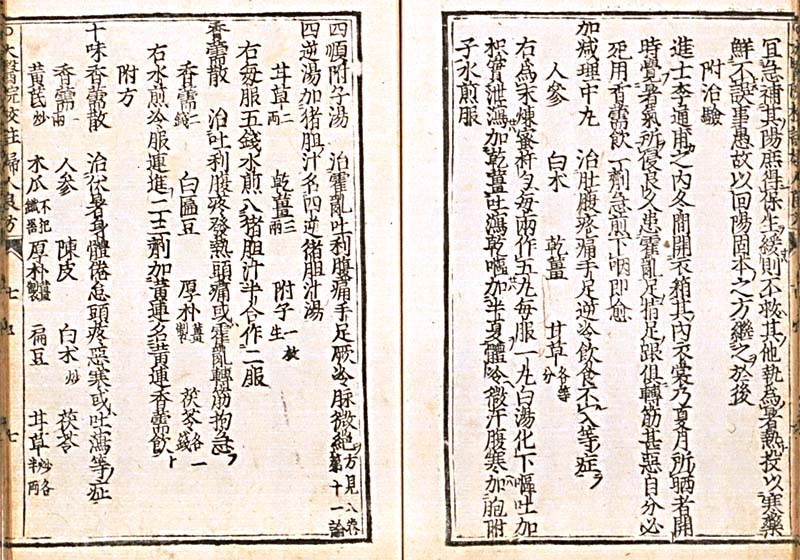 宜急補其陽庶得保生緩則不救其他執為暑熱投以寒藥
鮮不誤事愚故以回陽固本之方繼之於後
附治驗
進士李通甫之內冬間開衣箱其內衣裳乃夏月所晒者開
時覺暑氣所侵良久患霍亂足指足跟俱轉筋甚惡自分必
死用香薷飲一劑急煎下咽即愈
加減理中丸 治肚腹疼痛手足逆冷飲食不入等症
人參 白朮 乾薑 甘草各等分
右為末煉蜜杵勻每兩作五丸每服一丸白湯化下嘔吐加
枳實泄瀉加乾薑吐瀉乾嘔加半夏體冷微汗腹寒加炮附
子水煎服
四順附子湯 治霍亂吐利腹痛手足厥冷脉微絕方見八卷第十一論
四逆湯加猪胆汁名四逆猪胆汁湯
甘草二兩 乾薑三兩 附子一枚生
右每服五錢水煎入猪胆汁半合作二服
香薷散 治吐利腹疼發熱頭痛或霍亂轉筋拘急
香薷二錢 白匾豆 厚朴薑製 茯苓各一錢
右水煎冷服連進二三劑加黃連名黃連香薷飲
附方
十味香薷散 治伏暑身體倦怠頭疼惡寒或吐瀉等症
香薷一兩 人參 陳皮 白朮炒 茯苓
黃芪炒 木瓜不犯鐵器 厚朴薑製 扁豆 甘草炒各半兩
太醫院校註婦人良方